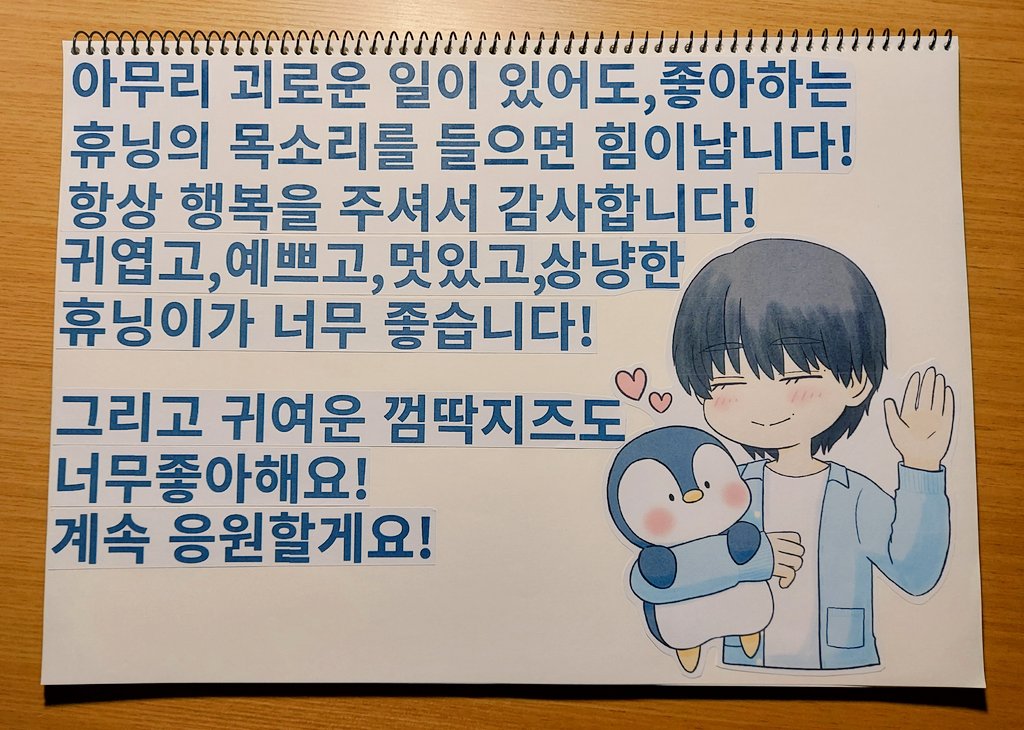 아무리 괴로운 일이 있어도,좋아하는
휴닝의 목소리를 들으면 힘이납니다!
항상 행복을 주셔서 감사합니다!
귀엽고,예쁘고,멋있고,상냥한
휴닝이가 너무 좋습니다!
그리고 귀여운 껌딱지즈도
너무좋아해요!
계속 응원할게요!